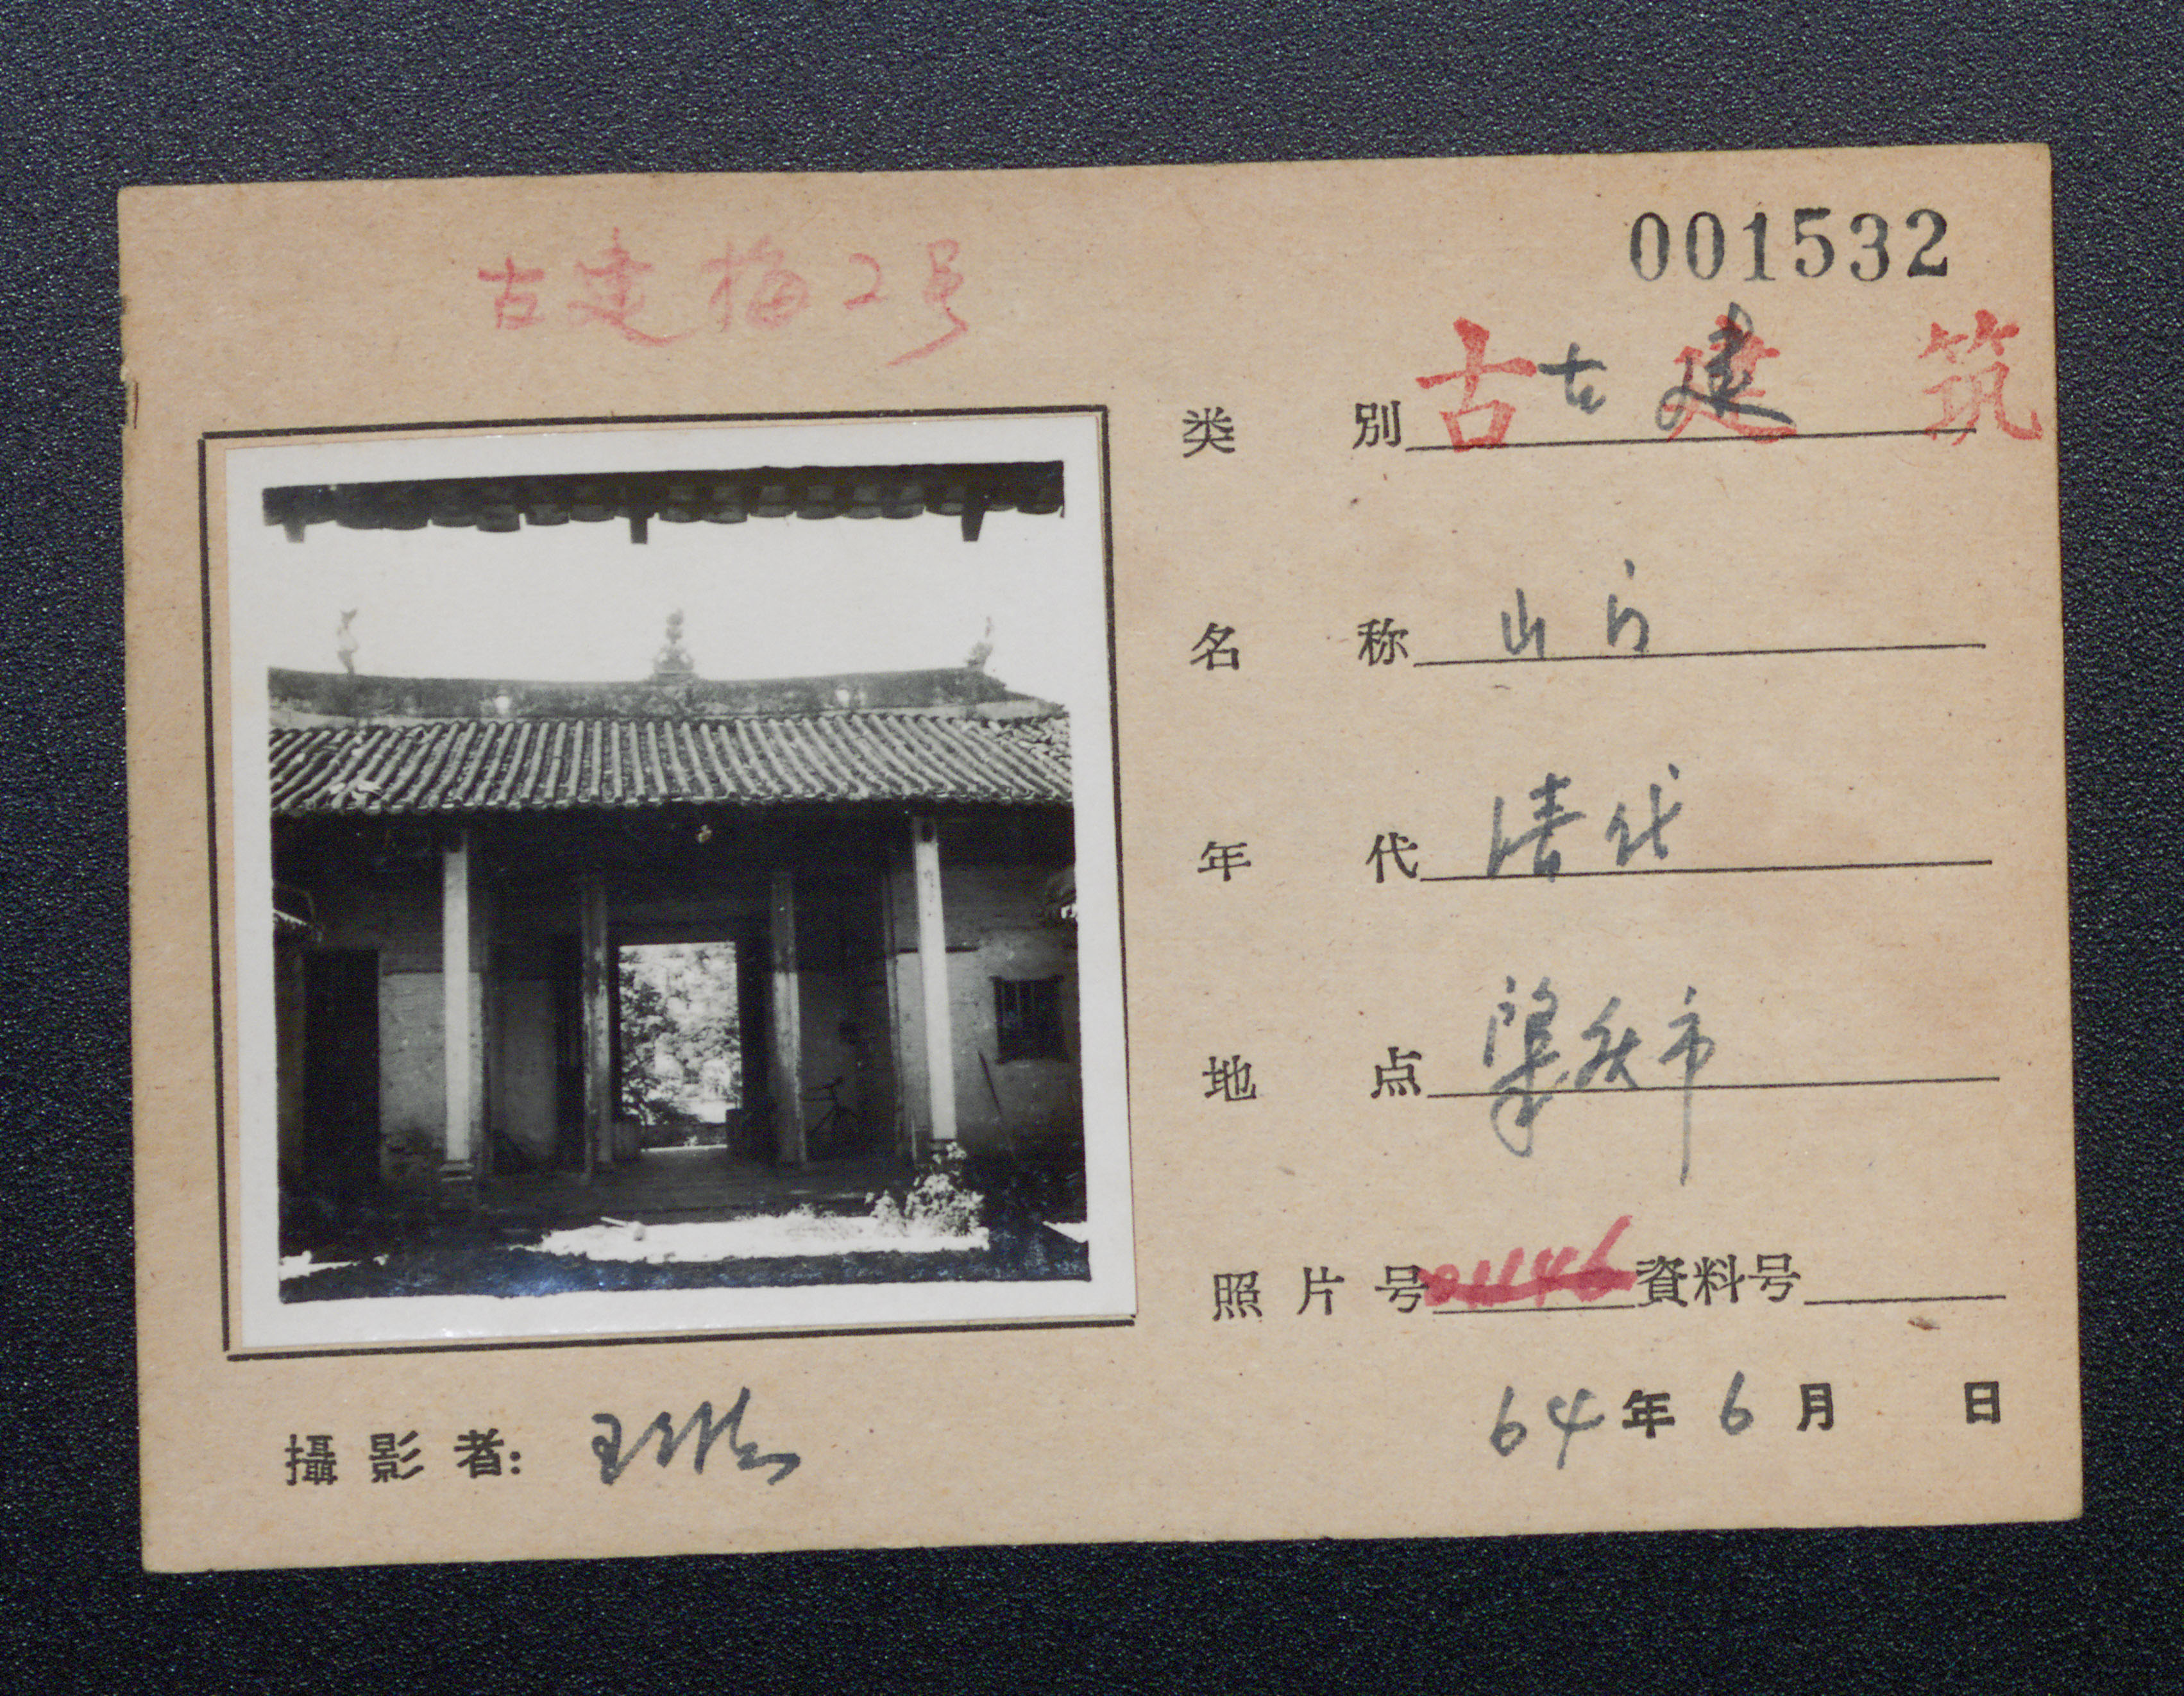 001532
古建梅2号
类別 古建筑 古建
名称 山门
年代 清代
地点 肇庆市
照片号 01146 資料号
64年6月 日
攝影者: 王